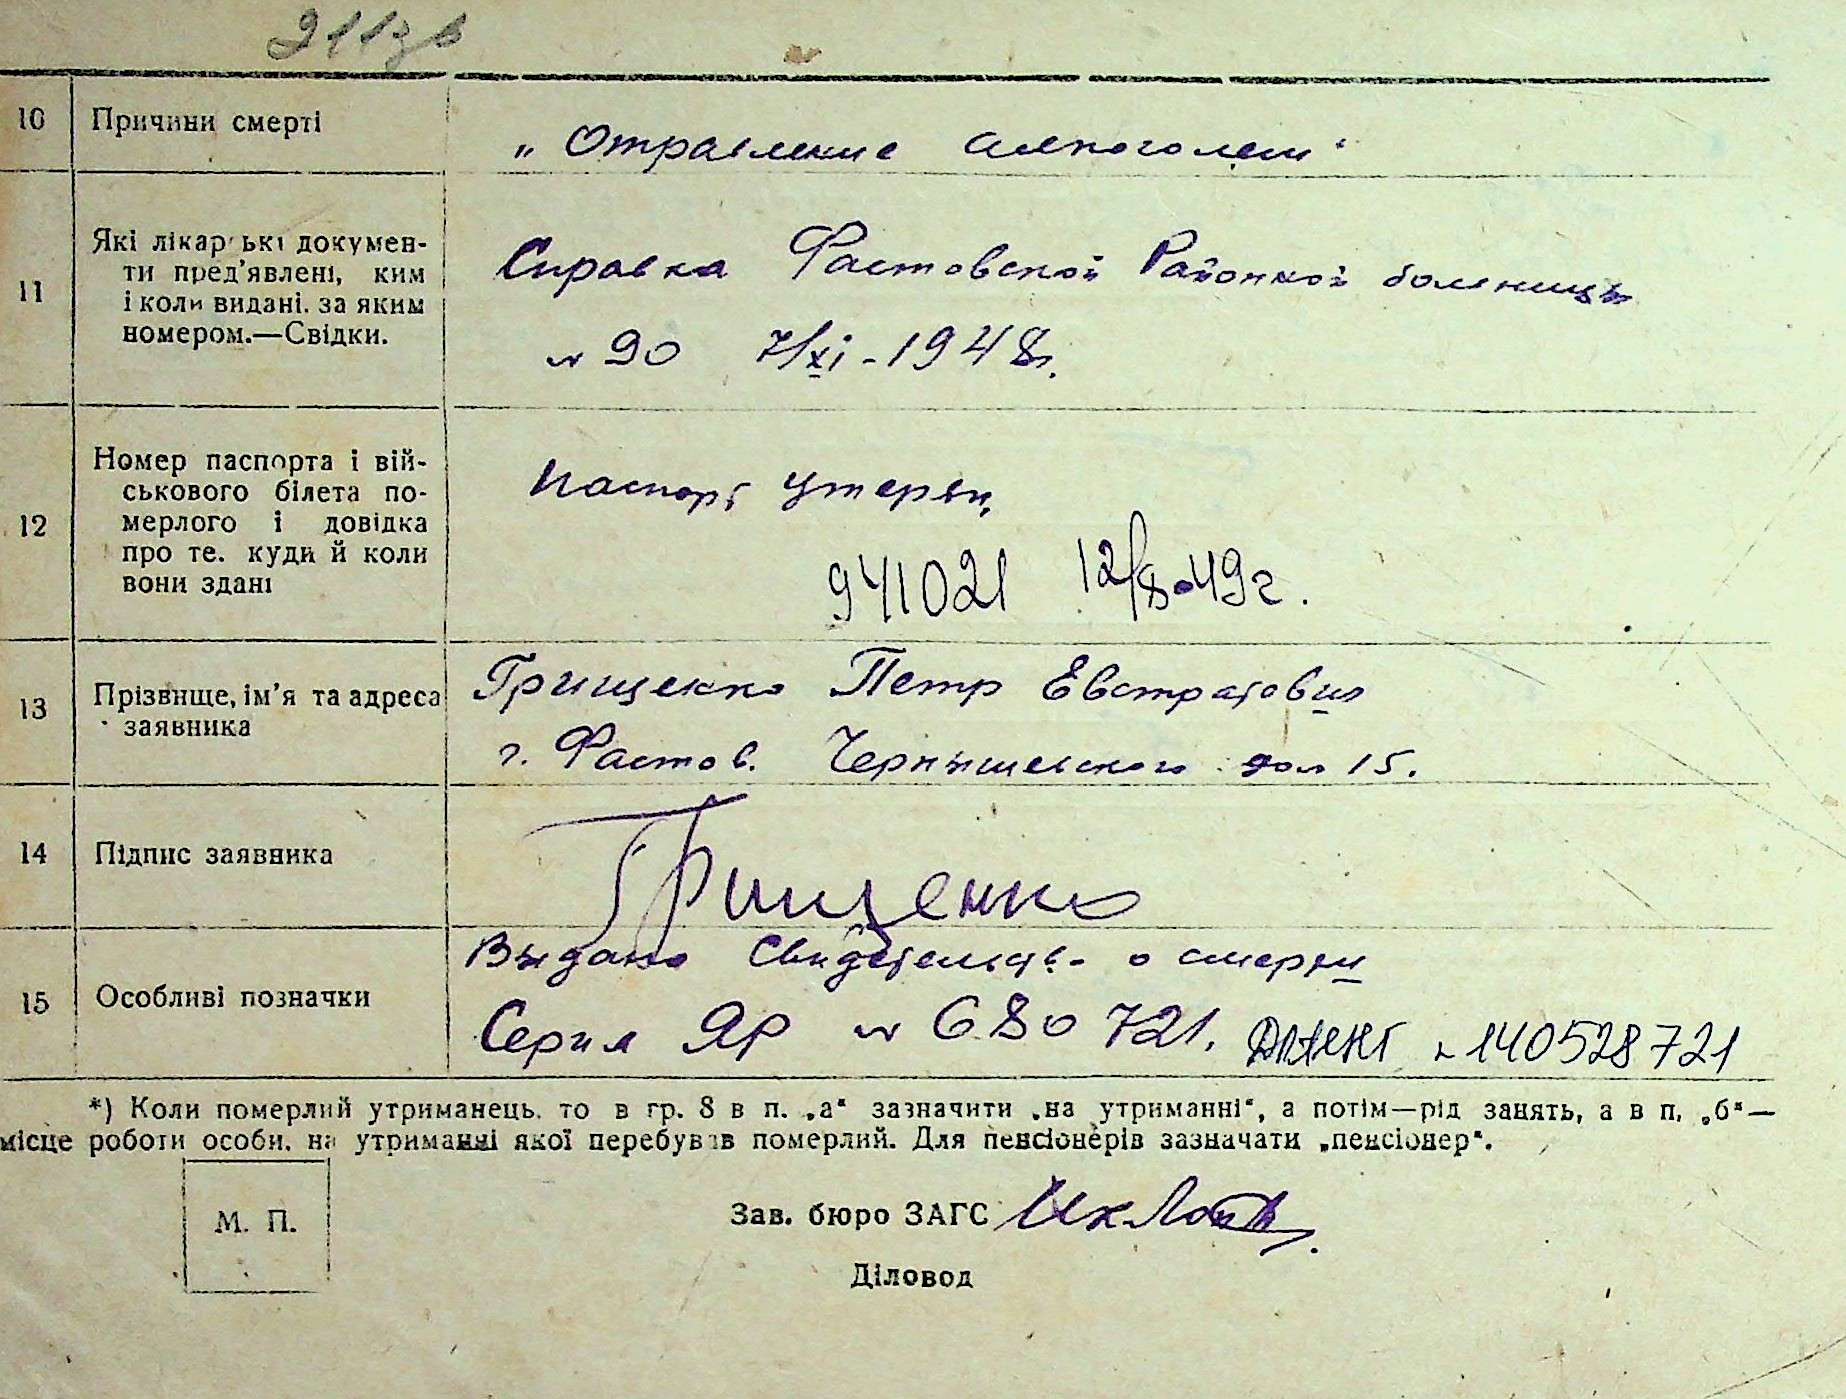 211зв
10 Причини смерті
„Отравление алкоголем“
11 Які лікарські докумен-
ти пред'явлені, ким
і коли видані. за яким
номером.—Свідки.
Справка Фастовской Районной больницы
№ 90 7/XI-1948г.
12 Номер паспорта і вій-
ськового білета по-
мерлого і довідка
про те. куди й коли
вони здані
Паспорт утерян,
941021 12/8-49г.
13 Прізвище, ім'я та адреса
заявника
Грищенко Петр Евстратович
г. Фастов. Чернышевского дом 15.
14 Підпис заявника
Грищенко
15 Особливі позначки
Выдано Свидетельство о смерти
Серия ЯР № 680721. №140528721
*) Коли померлий утриманець. то в гр. 8 в п. „а“ зазначити „на утриманні“, а потім—рід занять, а в п. „б“—
місце роботи особи. на утриманні якої перебував померлий. Для пенсіонерів зазначати „пенсіонер“.
М. П.
Зав. бюро ЗАГС
Діловод